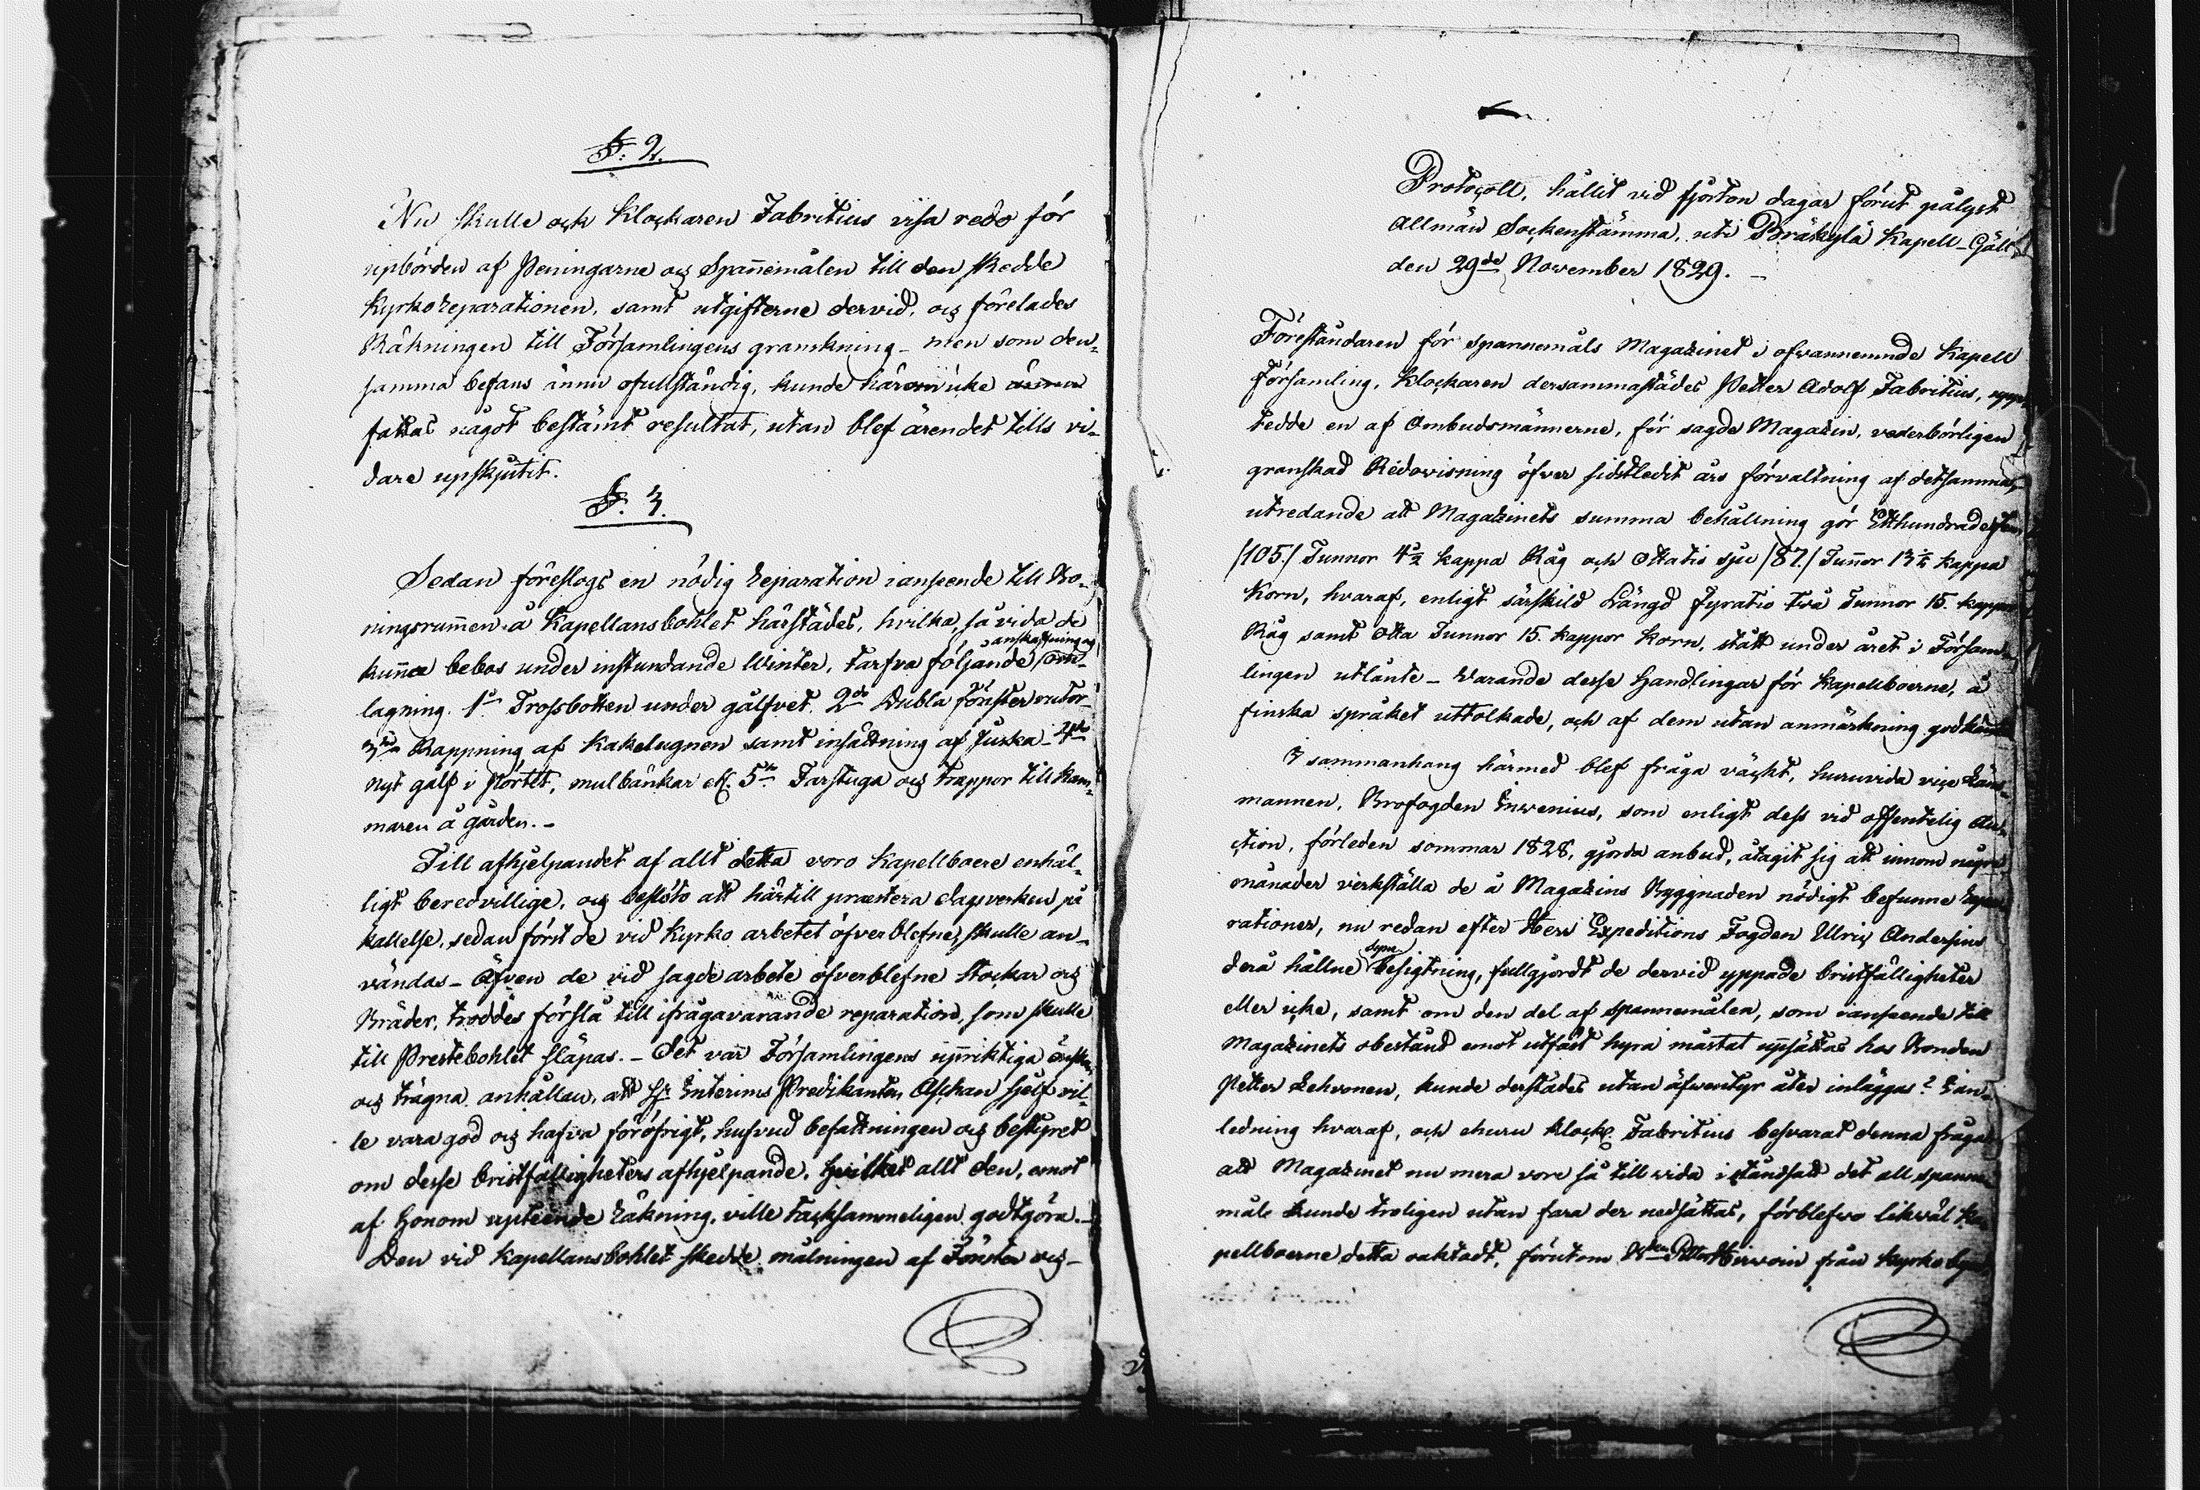 §. 2.
Nu skulle och Klockaren Fabritius visa redo för
upbörden af Peningarne och Spannemålen till den skedde
Kyrkoreparationen, samt utgifterne dervid, och förelades
Räkningen till Församlingens granskning – men som den-
samma befans ännu ofullständig, kunde härom icke
fattas något bestämt resultat, utan blef ärendet tills vi-
dare upskjutit.
§. 3.
Sedan föreslogs en nödig reparation i anseende till Bo-
ningsrummen å Kapellansbohlet härstädes, hvilka, så vida de
kunna bebos under instundande Winter, tarfva följande anskaffning och om-
lagning. 1o Trossbotten under gålfvet 2do Dubla fönsterrutor
3tio Rappning af Kakelugnen samt insättning af Juska – 4to
nyt gålf i pörtet, mulbänkar etc. 5to Farstuga och trappor till Kam-
maren å gården. –
Till afhjelpandet af allt detta voro Kapellboerne enhäl-
ligt beredvillige, och beslöto att härtill præstera dagsverken på
kallelse, sedan först de vid Kyrko arbetet öfverblefne, skulle an-
vändas – Äfven de vid sagde arbete öfverblefne Stockar och
Bräder, troddes förslå till ifrågavarande reparation, som skulle
till Prestebohlet släpas. – Det var Församlingens upriktiga önskan
och trägna anhållan, att Hr Interims Predikanten Aschan sjelf vil-
le vara god och hafva föröfrigt, hufvud befattningen och bestyret
om desse bristfälligheters afhjelpande, hvilket allt den, emot
af Honom upteende räkning, ville tacksammeligen godtgöra. –
Den vid Kapellansbohlet skedde målningen af Fönster och –
Protocoll, hållit vid fjorton dagar förut pålyst
Allmän Sockenstämma, uti Bräkylä Kapell-Gäll
den 29de November 1829. –
Föreståndaren för Spannemåls Magazinet i ofvannemnde Kapell
Församling, Klockaren dersammastädes Petter Adolf Fabritius, upp-
tedde en af Ombudsmännerne, för sagde Magazin, vederbörligen
granskad Redovisning öfver sidstledit års förvaltning af detsamma,
utredande att Magazinets summa behållning gör Etthundrade fem
/105./ Tunnor 4½ kappa Råg och Ottatio sju /87./ Tunnor 13½ kappa
Korn, hvaraf, enligt särskild Längd fyratio två Tunnor 15. kappor
Råg samt Otta Tunnor 15. kappor Korn, stått under året i Försam-
lingen utlånte – Warande desse Handlingar för Kapellboerne, å
finska språket uttolkade, och af dem utan anmärkning godkände
I sammanhang härmed blef fråga väckt, huruvida vice Läns-
mannen, Brofogden Inwenius, som enligt dess vid offentelig Au-
ction, förleden sommar 1828, gjorda anbud, åtagit sig att innom några
månader verkställa de å Magazins Byggnaden nödigt befunne repa-
rationer, nu redan efter Herr Expeditions Fogden Ulric Andersins
derå hållne syn besigtning, fullgjordt de dervid yppade bristfälligheter
eller icke, samt om den del af Spannemålen, som i anseende till
Magazinets obestånd emot utfäst hyra måstat uppsättas hos Bonden
Petter Lehvonen, kunde derstädes utan äfventyr åter inläggas? I an-
ledning hvaraf, och ehuru Klock. Fabritius besvarat denna fråga
att Magazinet nu mera vore så till vida i ståndsatt det all spanne-
mål kunde troligen utan fara der nedsättas, förblefvo likväl Ka-
pellboerne detta oaktadt, förutom Petter Hirvoin från Kyrko by